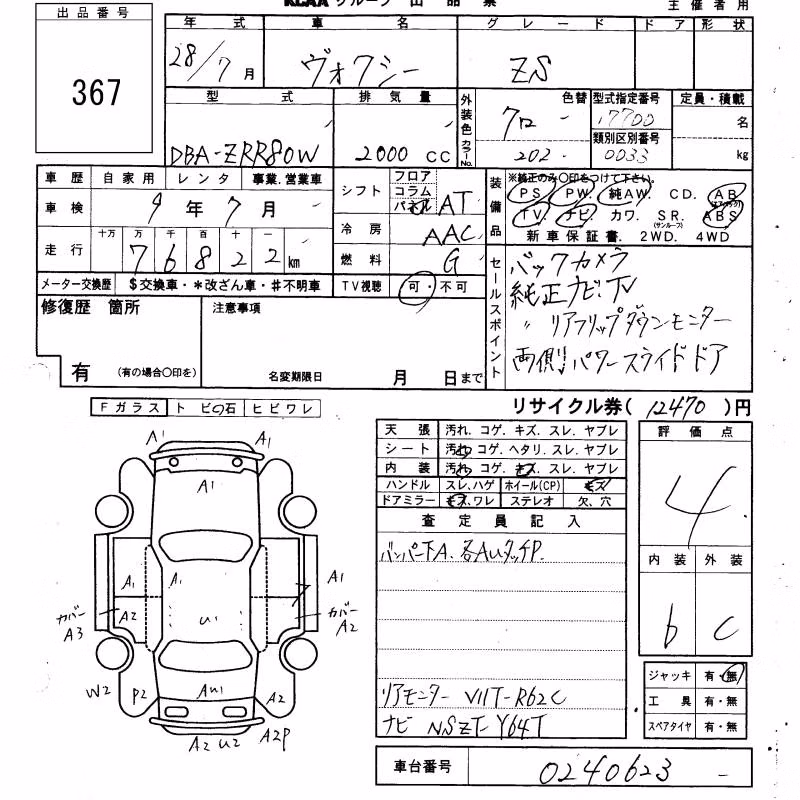 KCAA グループ 出 品 票
主 催 者 用
出 品 番 号
367
年 式 車 名 グ レ ー ド ド ア 形 状
28/7 月 ヴォクシー ZS
型 式 排 気 量 外装色 カラーNo. 色替 型式指定番号 定員・積載
クロ 17700 名
類別区別番号
DBA-ZRR80W 2000 CC 202 0033 kg
車 歴 自 家 用 レ ン タ 事業.営業車
車 検 9 年 7 月
走 行 十万 万 千 百 十 一
7 6 8 2 2 km
メーター交換歴 $交換車・*改ざん車・#不明車
シ フ ト フロア コラム パネル AT
冷 房 AAC
燃 料 G
TV視聴 可・不可
装備品 ※純正のみ〇印をつけて下さい。
PS PW. 純AW. CD. AB
TV. ナビ カワ. SR. ABS
(サンルーフ)
新 車 保 証 書. 2WD. 4WD
セールスポイント
バックカメラ
純正ナビ・TV
〃 リアフリップダウンモニター
両側パワースライドドア
修復歴 箇所
有 (有の場合〇印を)
注意事項
名変期限日 月 日まで
リサイクル券( 12470 )円
F ガ ラ ス ト ビ の 石 ヒ ビ ワ レ
天 張 汚れ. コゲ. キズ. スレ. ヤブレ
シ ー ト 汚れ. コゲ. ヘタリ. スレ. ヤブレ
内 装 汚れ. コゲ. キズ. スレ. ヤブレ
ハンドル スレ.ハゲ ホイール(CP) キズ
ドアミラー キズ.ワレ ステレオ 欠、穴
査 定 員 記 入
バンパー下A. 各AUタッチP.
リアモニター V11T-R62C
ナビ NSZT-Y64T
評 価 点
4
内 装 外 装
b C
ジャッキ 有・無
工 具 有・無
スペアタイヤ 有・無
車台番号 0240623
A1 A1
A1
A1 A1 A1
カバー A3 A2 U1 カバー A2
W2 P2 AU1 A2
A2 U2 A2P